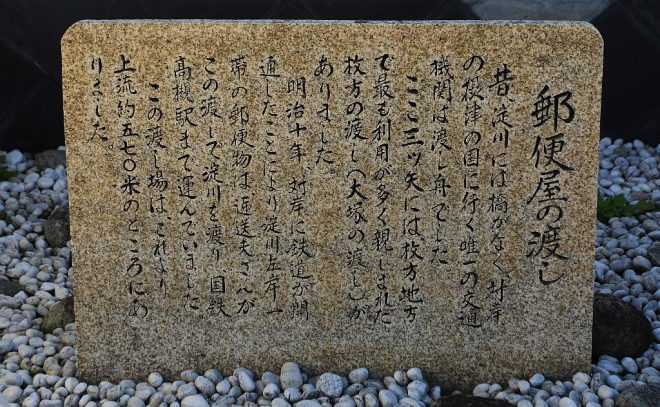 郵便屋の渡し
昔、淀川には橋がなく、対岸
の摂津の国に行く唯一の交通
機関は渡し舟でした
ここ三ッ矢には、枚方地方
で最も利用が多く親しまれた
枚方の渡し（大塚の渡し）が
ありました
明治十年、対岸に鉄道が開
通したことにより淀川左岸一
帯の郵便物は、逓送夫さんが
この渡しで淀川を渡り、国鉄
高槻駅まで運んでいました
この渡し場は、これより
上流約五七〇米のところにあ
りました